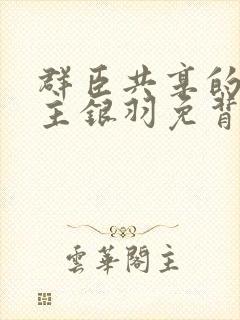 群臣共享的
主銀羽免背
雲華閣主